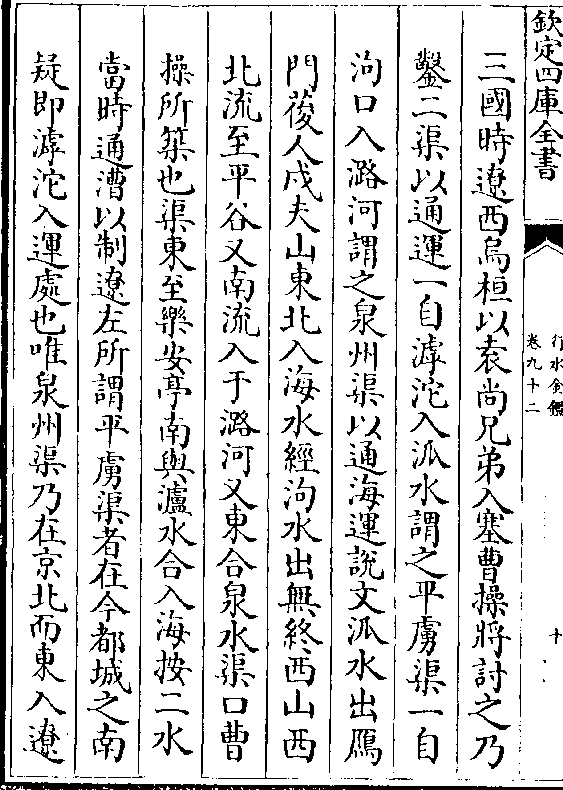 欽定四庫全書
行水金鑑
卷九十二
十
三國時遼西烏桓以袁尚兄弟入塞曹操將討之乃
鑿二渠以通運一自滹沱入泒水謂之平虜渠一自
泃口入潞河謂之泉州渠以通海運說文泒水出鴈
門葰人戍夫山東北入海水經泃水出無終西山西
北流至平谷又南流入于潞河又東合泉水渠口曹
操所築也渠東至樂安亭南與瀘水合入海按二水
當時通漕以制遼左所謂平虜渠者在今都城之南
疑即滹沱入運處也唯泉州渠乃在京北而東入遼